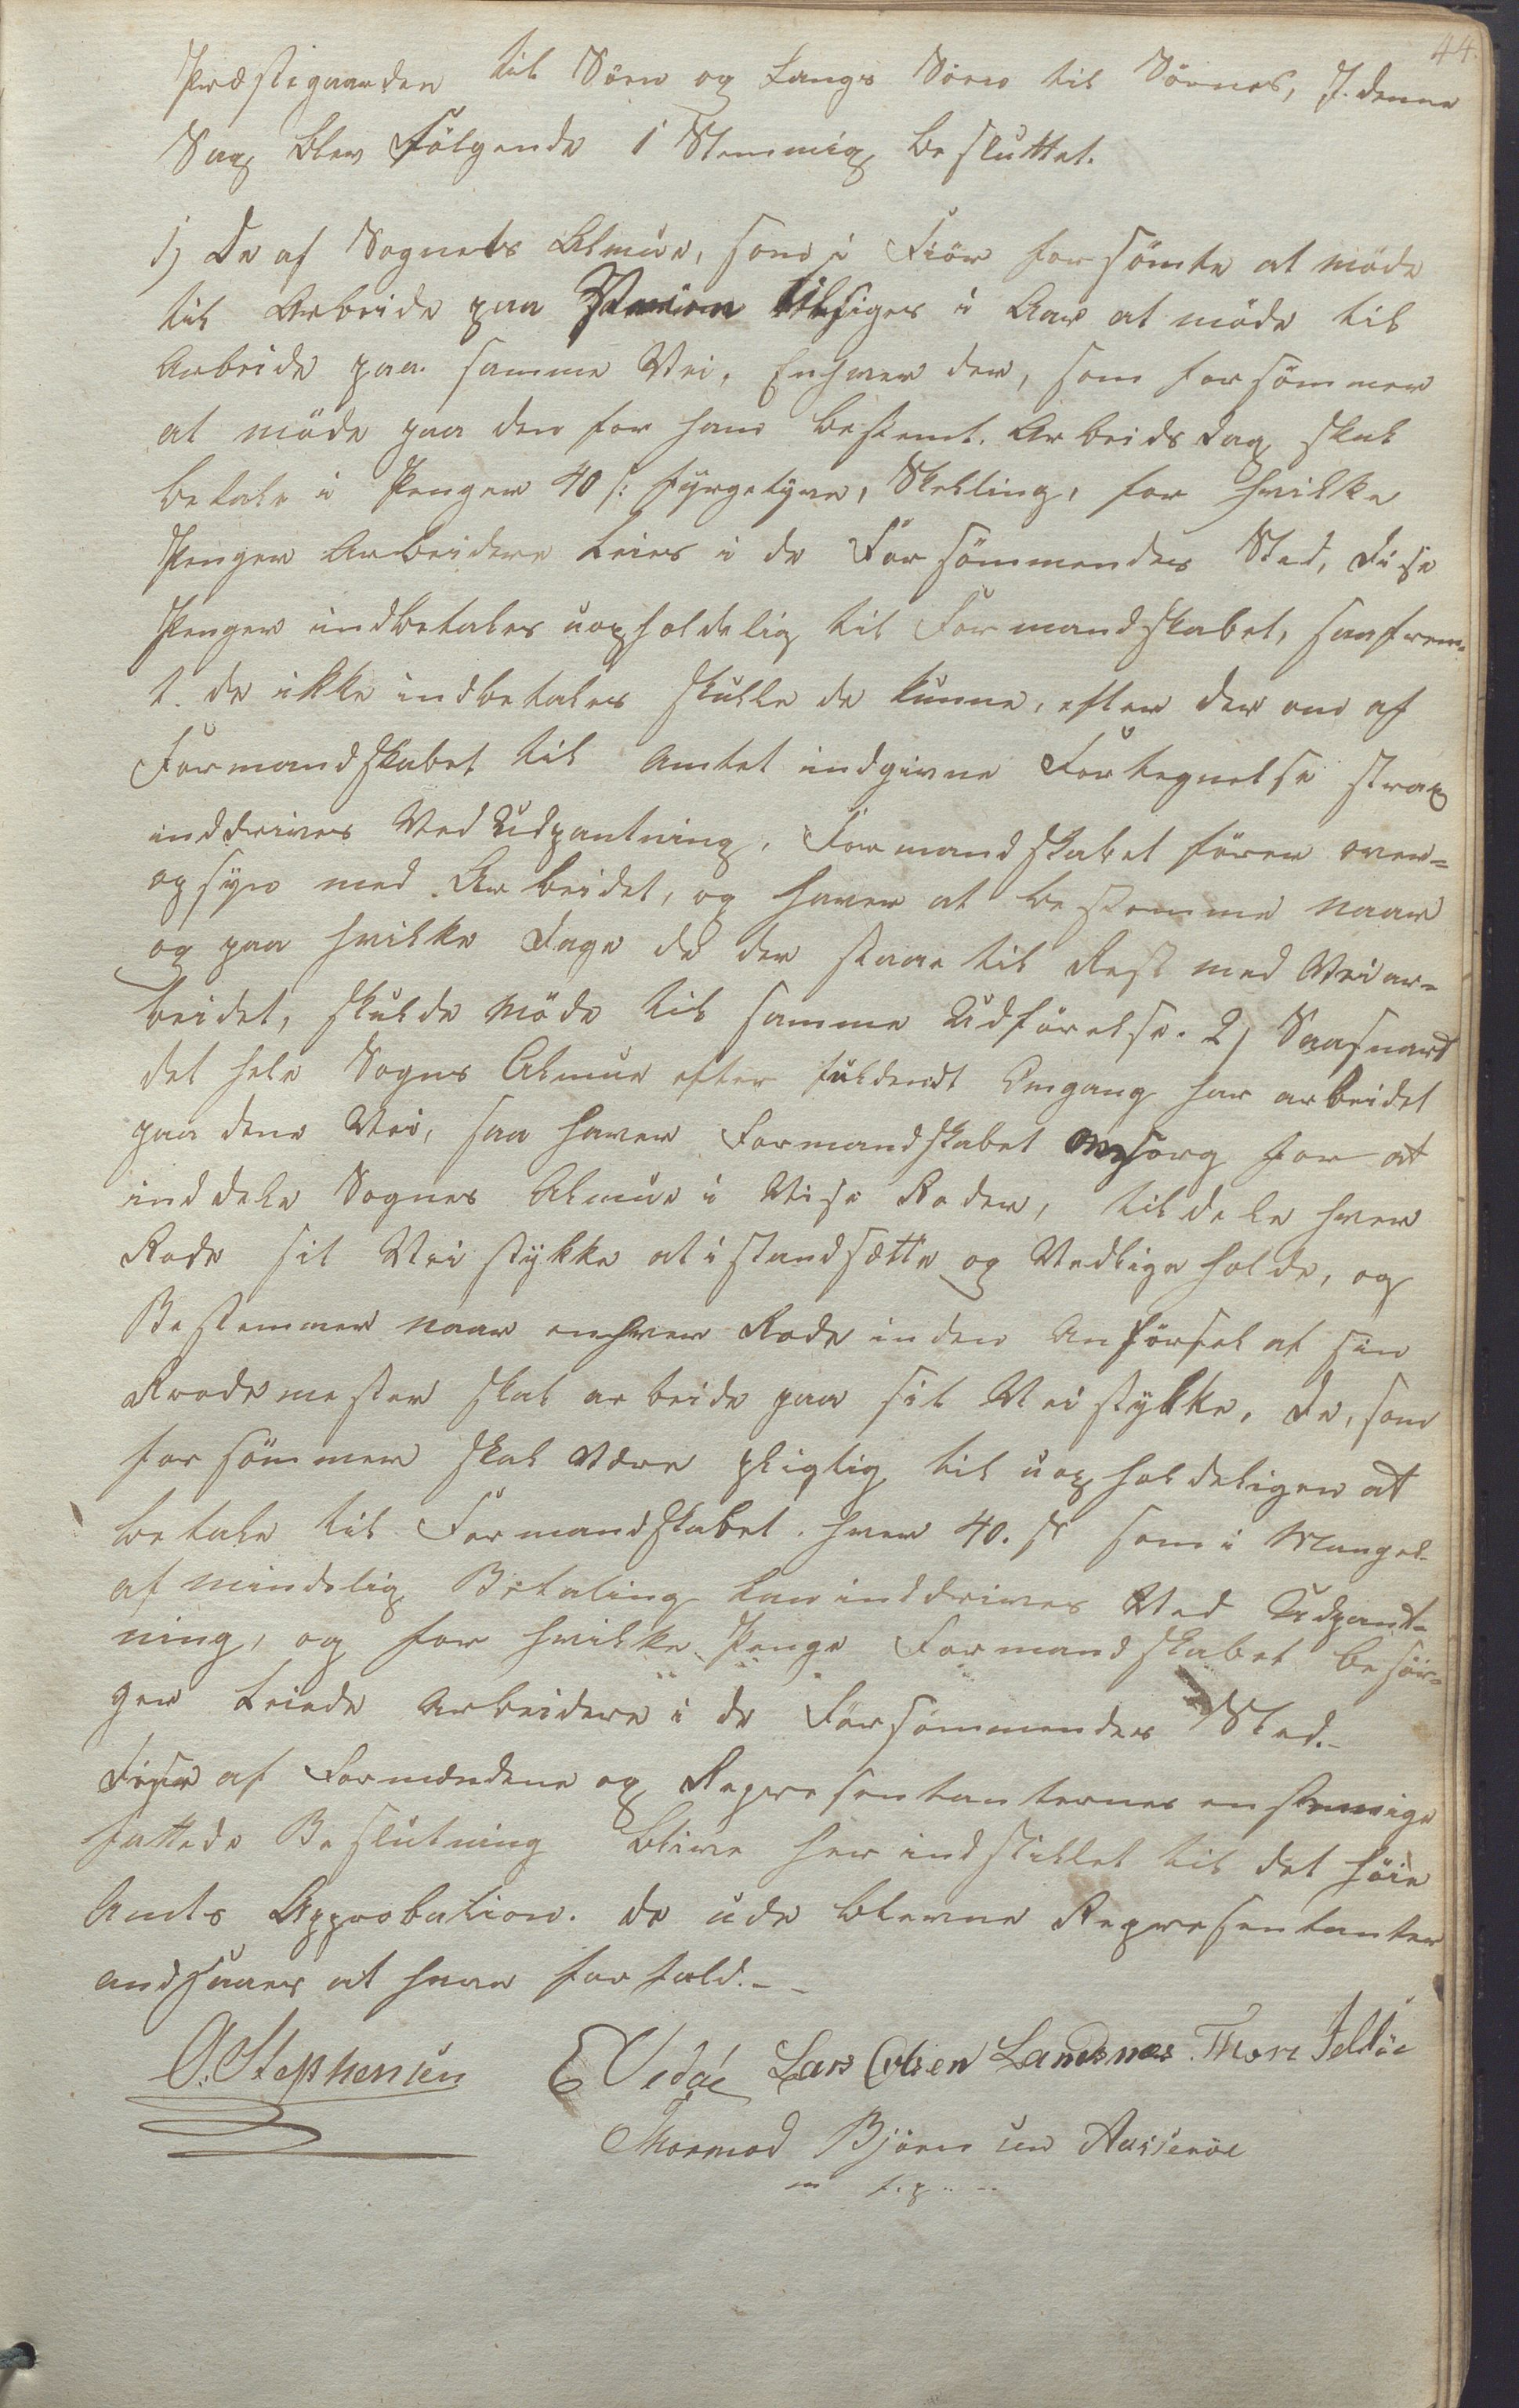 44.
Præstegaarden til Söen og Langs Söen til Sörnes, I denne
Sag blev Fölgende 1 Stemmig besluttet.
1) De af Sognets Almue, som i Fiör forsömte at möde
til Arbeide paa Veien tilsiges i Aar at möde til
Arbeide paa samme Vei. Enhver der, som forsömmer
at möde paa den for ham bestemt. Arbeidsdag skal
betale i Penger 40 s: fyrgetyve, Skelling, for hvilke
Penger Arbeidere leies i de Forsömmendes Sted, Disse
Penger indbetales uopholdelig til Formandskabet, saafrem-
t. de ikke indbetales skulle de kunne, efter der om af
Formandskabet til Amtet indgivne Fortegnelse strax
inddrives Ved Udpantning. Formandskabet förer over-
opsyn med Arbeidet, og haver at bestemme naar
og paa hvilke Dage de der staae til Rest med Veiar-
beidet, skulde Möde til samme Udförelse. 2) Saasnart
det hele Sogns Almue efter fuldendt Omgang har arbeidet
paa dene Vei, saa haver Formandskabet omsorg for at
inddele Sognes Almue i Vise Roder, tildele hver
Rode sit Veistykke at istandsætte og Vedligeholde, og
Bestemmer naar enhver Rode inden Anförsel af sin
Roodemester skal arbeide paa sit Veistykke, De, som
forsömmer skal være pligtig til uopholdeligen at
betale til Formandskabet hver 40. s som i Mangel
af mindelig Betaling kan inddrives Ved Udpant-
ning, og for hvilke Penge Formandskabet besör-
ger Leiede Arbeidere i de Forsömmendes Sted.-
Disse af Formændene og Representanternes enstemmige
fattede Beslutning blive her indstillet til det höie
Amts Approbation. De udeblevne Representanter
andsaaes at have forfald.-
O. Stephensen E Vedöe Lars Olsen Lamsnes. Thore Feltöe
Thormod Björnsen Ausseröe
m f. p.